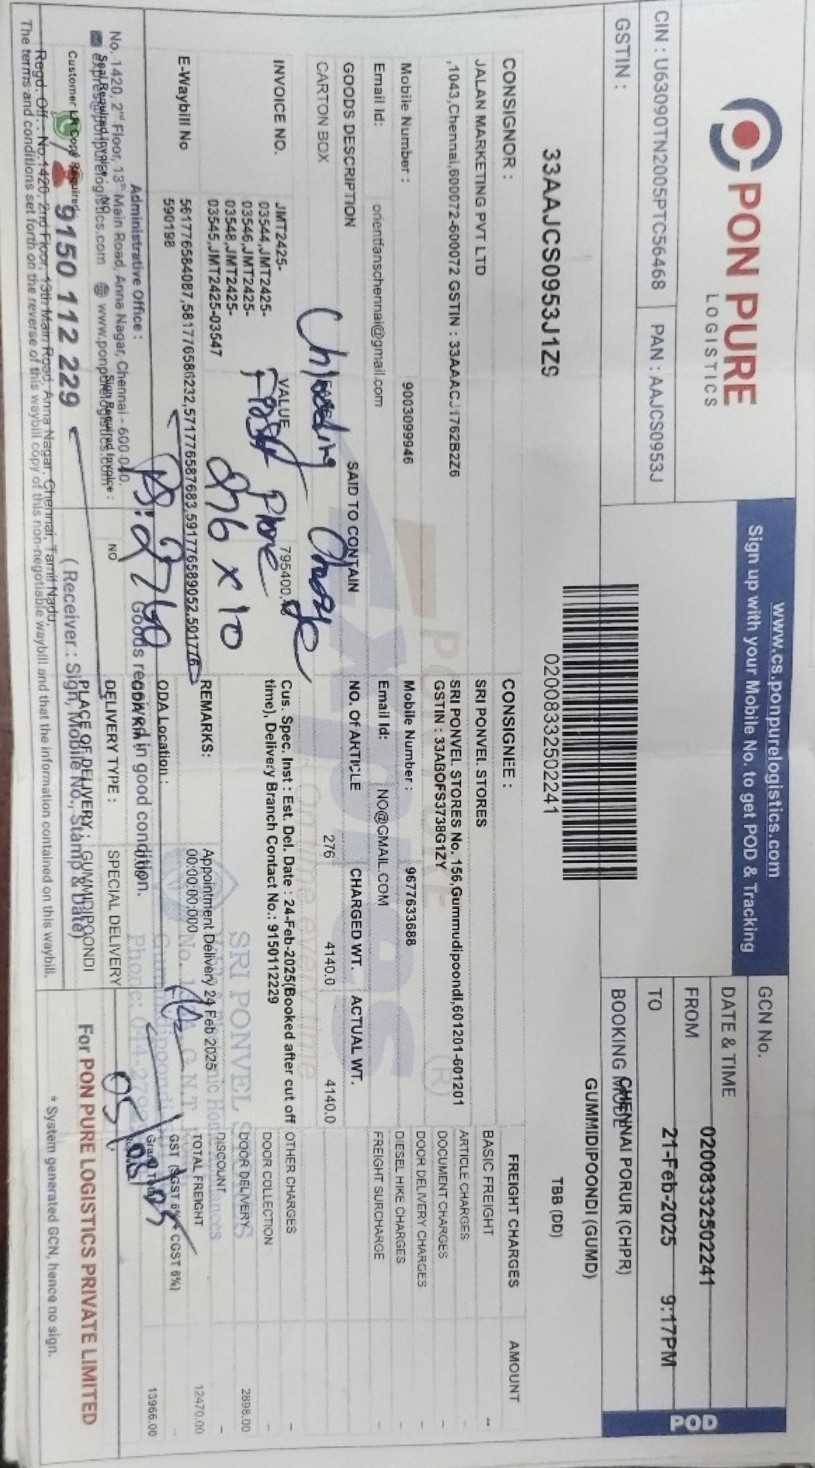 PON PURE
LOGISTICS
www.cs.ponpurelogistics.com
Sign up with your Mobile No. to get POD & Tracking
POD
CIN : U63090TN2005PTC56468 PAN : AAJCS0953J
GSTIN :
33AAJCS0953J1Z9
02008332502241
GCN No. 02008332502241
DATE & TIME 21-Feb-2025 9:17PM
FROM CHENNAI PORUR (CHPR)
TO GUMMIDIPOONDI (GUMD)
BOOKING MODE TBB (DD)
CONSIGNOR :
JALAN MARKETING PVT LTD
,1043,Chennai,600072-600072 GSTIN : 33AAACJ1762B2Z6
Mobile Number : 9003099946
Email Id: orientfanschennai@gmail.com
CONSIGNEE :
SRI PONVEL STORES
SRI PONVEL STORES No. 156,Gummudipoondi,601201-601201
GSTIN : 33ABOFS3738G1ZY
Mobile Number : 9677633688
Email Id: NO@GMAIL.COM
GOODS DESCRIPTION SAID TO CONTAIN NO. Of ARTICLE CHARGED WT. ACTUAL WT.
CARTON BOX 276 4140.0 4140.0
INVOICE NO. JMT2425-
03544,JMT2425-
03546,JMT2425-
03548,JMT2425-
03545,JMT2425-03547
VALUE 795400.
E-Waybill No 561776584087,581776586232,571776587683,591776589052,501776
590198
Cus. Spec. Inst : Est. Del. Date : 24-Feb-2025(Booked after cut off
time), Delivery Branch Contact No.: 9150112229
REMARKS: Appointment Delivery 24 Feb 2025
00:00:00:000
ODA Location :
DELIVERY TYPE : SPECIAL DELIVERY
PLACE OF DELIVERY : GUMMIDIPOONDI
FREIGHT CHARGES AMOUNT
BASIC FREIGHT --
ARTICLE CHARGES -
DOCUMENT CHARGES -
DOOR DELIVERY CHARGES -
DIESEL HIKE CHARGES -
FREIGHT SURCHARGE -
OTHER CHARGES -
DOOR COLLECTION -
DOOR DELIVERY 2898.00
DISCOUNT -
TOTAL FREIGHT 12470.00
GST (SGST 6% CGST 6%) -
13966.00
276 x 10
SRI PONVEL
Administrative Office :
No. 1420, 2nd Floor, 13th Main Road, Anna Nagar, Chennai - 600 040.
express@ponpurelogistics.com www.ponpurelogistics.com
Sign Required Invoice : NO
Customer LR Copy Required
9150 112 229
Goods received in good condition.
(Receiver : Sign, Mobile No., Stamp & Date)
For PON PURE LOGISTICS PRIVATE LIMITED
Regd. Off. : No.1420, 2nd Floor, 13th Main Road, Anna Nagar, Chennai, Tamil Nadu,
The terms and conditions set forth on the reverse of this waybill copy of this non-negotiable waybill and that the information contained on this waybill.
* System generated GCN, hence no sign.